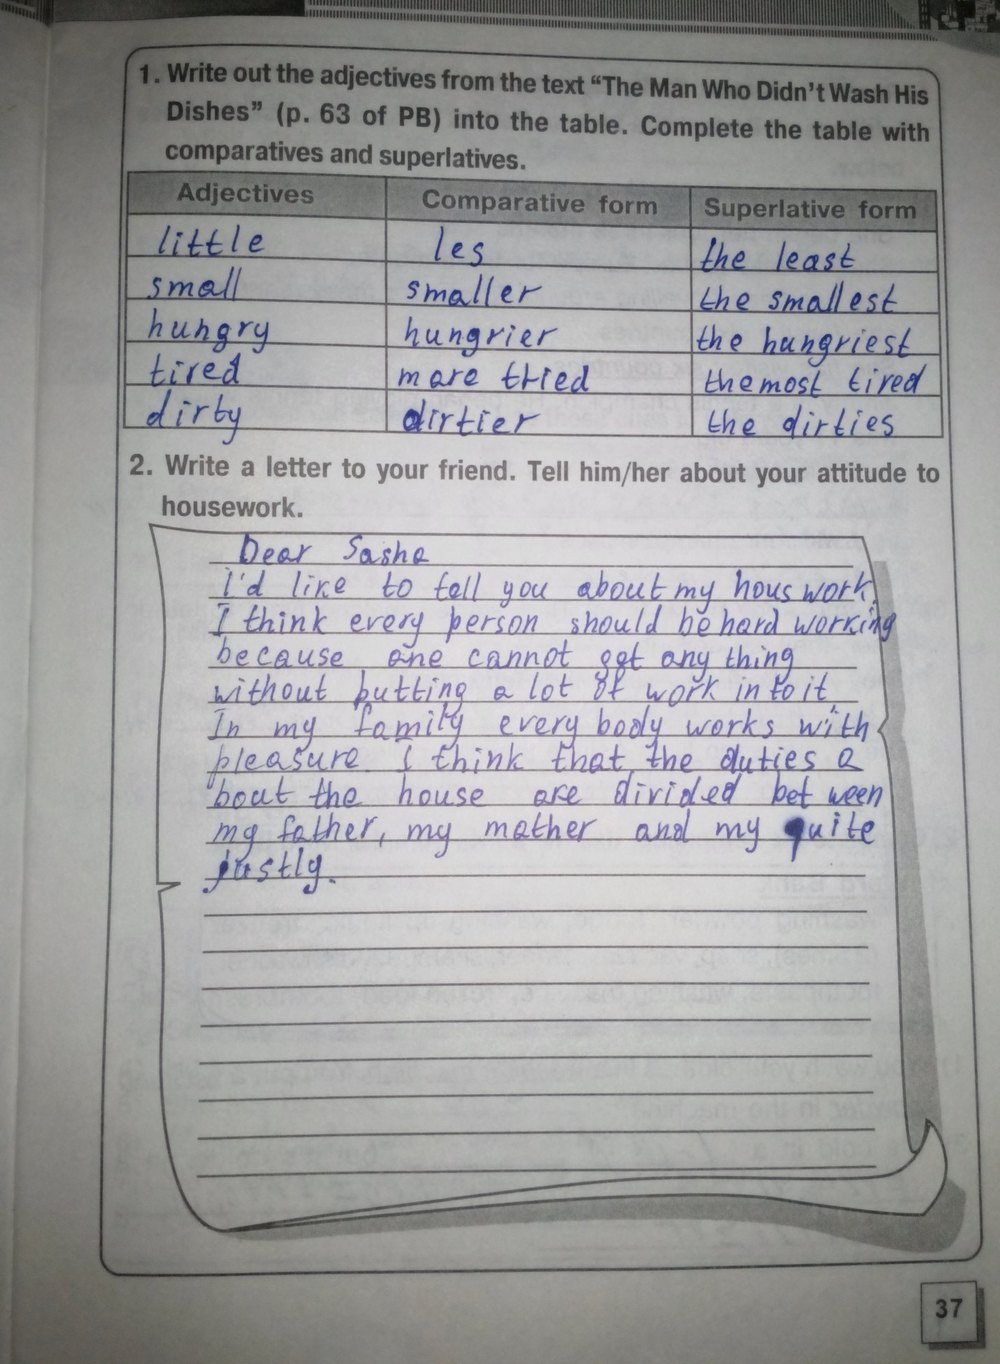 1. Write out the adjectives from the text “The Man Who Didn’t Wash His
Dishes” (p. 63 of PB) into the table. Complete the table with
comparatives and superlatives.
Adjectives Comparative form Superlative form
little les the least
small smaller the smallest
hungry hungrier the hungriest
tired more tried the most tired
dirty dirtier the dirties
2. Write a letter to your friend. Tell him/her about your attitude to
housework.
Dear Sasha
I'd like to tell you about my hous work.
I think every person should be hard working
because one cannot get any thing
without putting a lot of work in to it
In my family every body works with
pleasure. I think that the duties a
bout the house are divided bet ween
my father, my mother and my quite
justly.
37